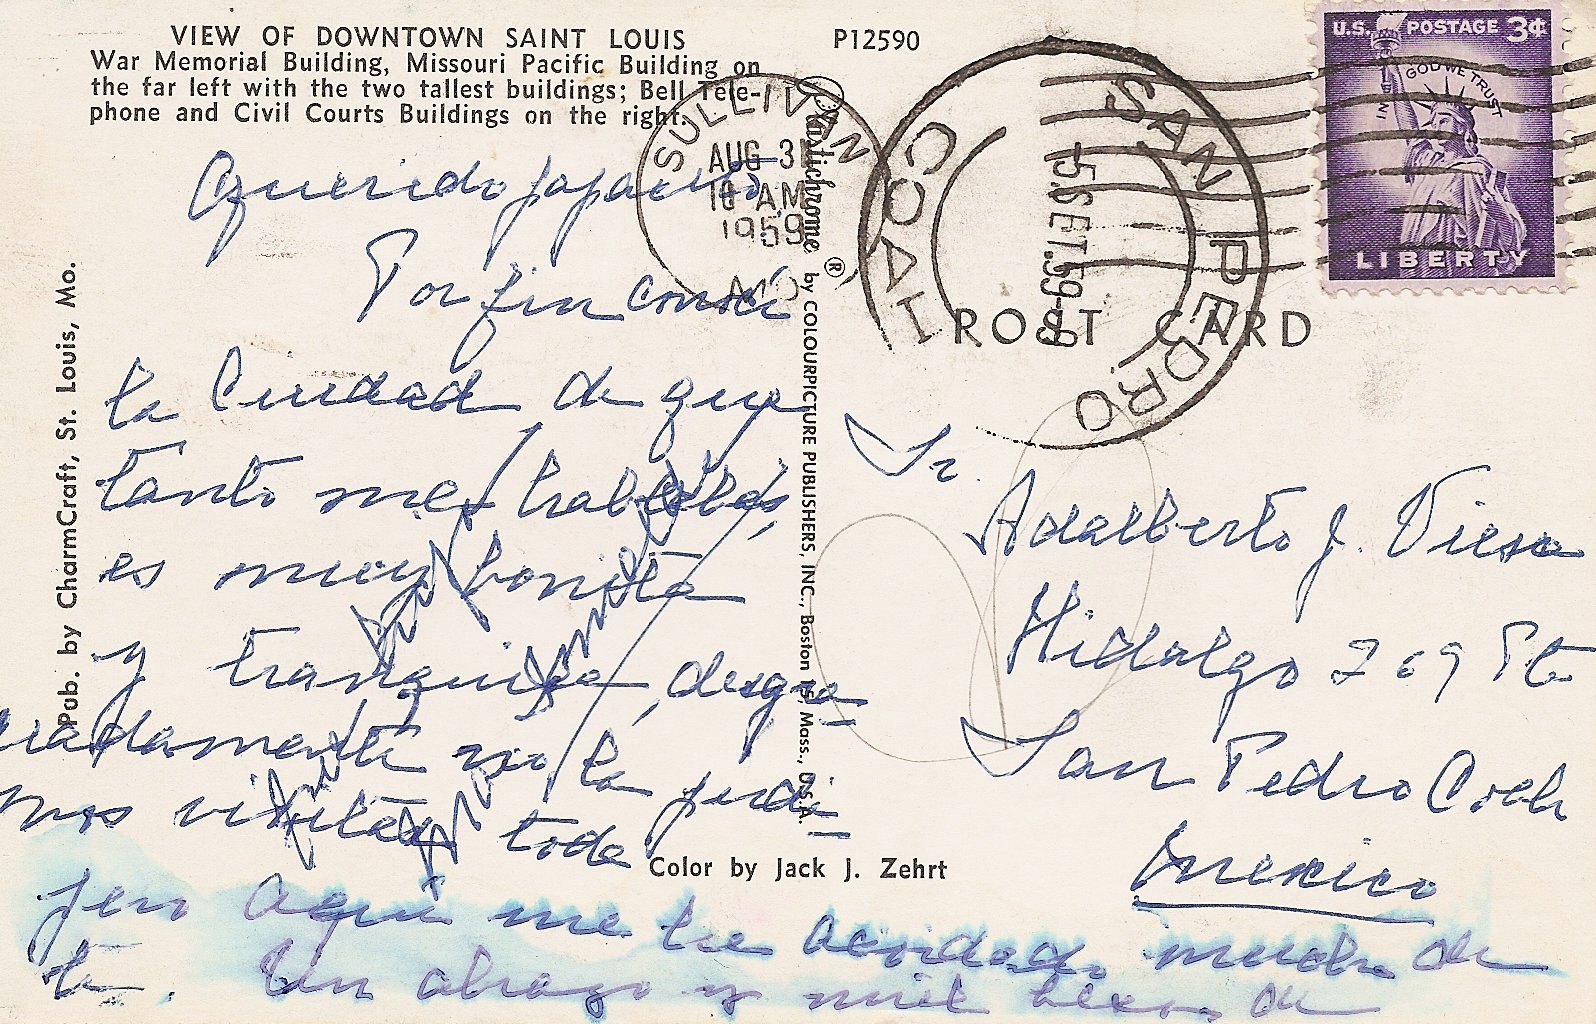 VIEW OF DOWNTOWN SAINT LOUIS
War Memorial Building, Missouri Pacific Building on
the far left with the two tallest buildings; Bell Tele-
phone and Civil Courts Buildings on the right.
P12590
SULLIVAN
AUG 31
10 AM
1959
MO
SAN PEDRO
COAH
5.SET.59
U.S. POSTAGE 3¢
IN GOD WE TRUST
LIBERTY
POST CARD
Pub. by CharmCraft, St. Louis, Mo.
Plastichrome ® by COLOURPICTURE PUBLISHERS, INC., Boston 15, Mass., U.S.A.
Querido papacito
Por fin conocí
la Ciudad de que
tanto me hablabas,
es muy bonita
y tranquila, desgra-
ciadamente no la pudi-
mos visitar toda
pero aquí me he acordado mucho de
ti. Un abrazo y mil besos de
Sr.
Adalberto J. Viesca
Hidalgo 269 Pte
San Pedro Coah
Mexico
Color by Jack J. Zehrt